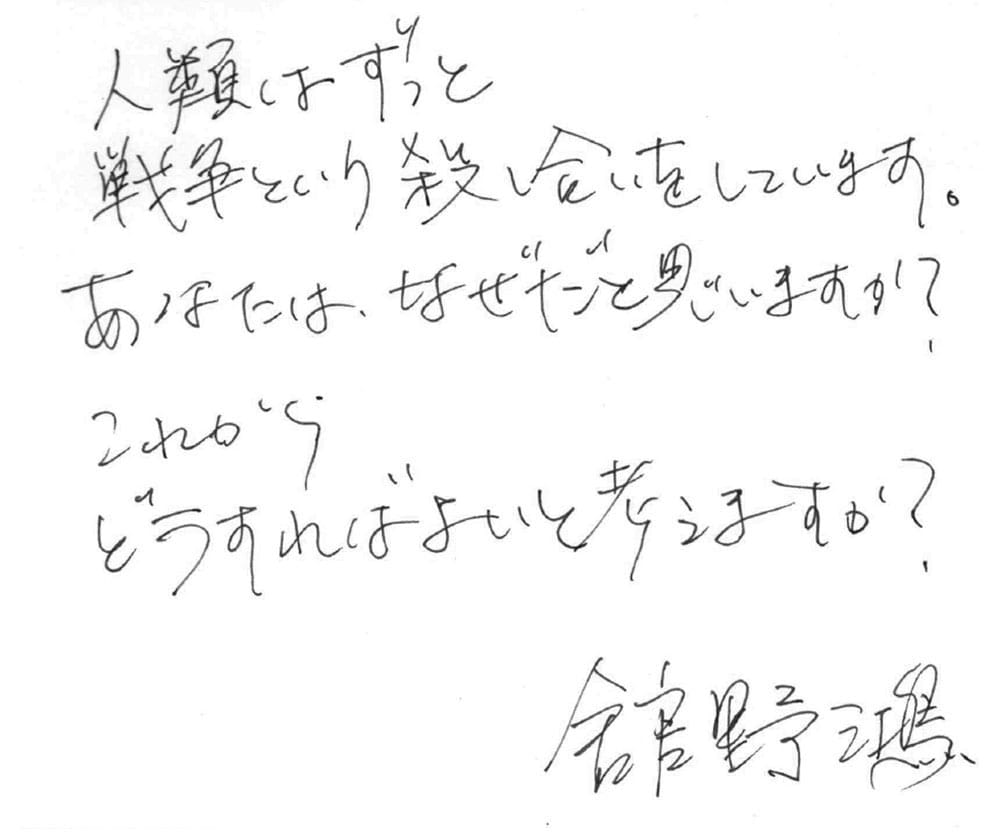 人類はずっと
戦争という殺し合いをしています。
あなたは、なぜだと思いますか?
これから
どうすればよいと考えますか?
舘野鴻